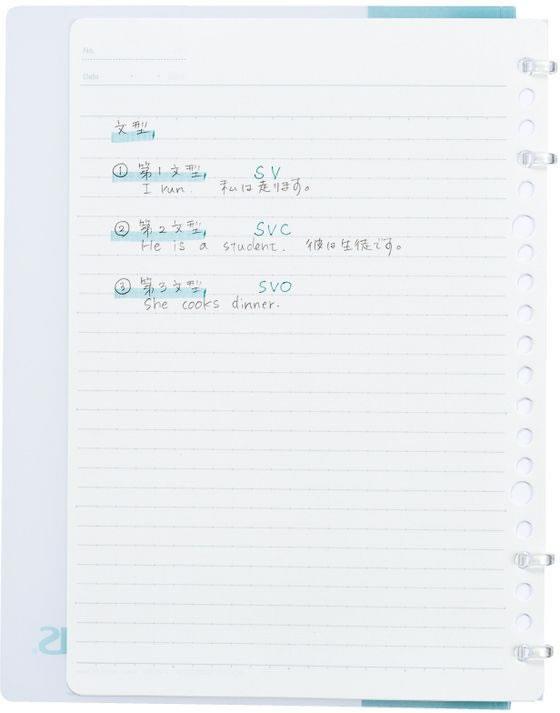 No.
Date
文型
① 第1文型 SV
I run. 私は走ります。
② 第2文型 SVC
He is a student. 彼は生徒です。
③ 第3文型 SVO
She cooks dinner.